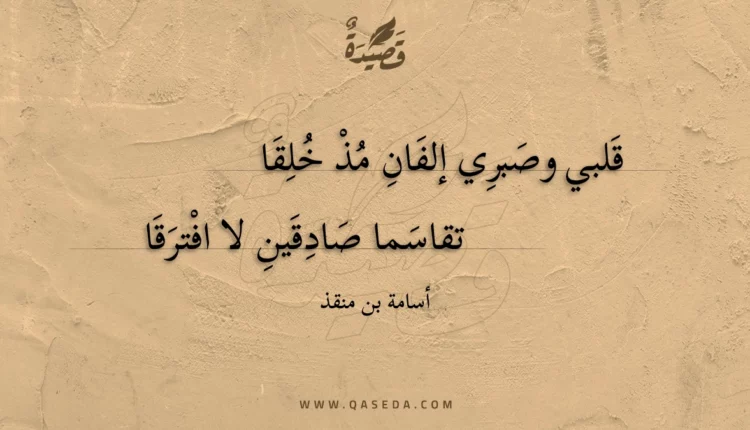 قَصِيدَةٌ
قَلبي وصَبرِي إلفَانِ مُذْ خُلِقَا
تقاسَما صَادِقَينِ لا افْترَقَا
أسامة بن منقذ
WWW.QASEDA.COM